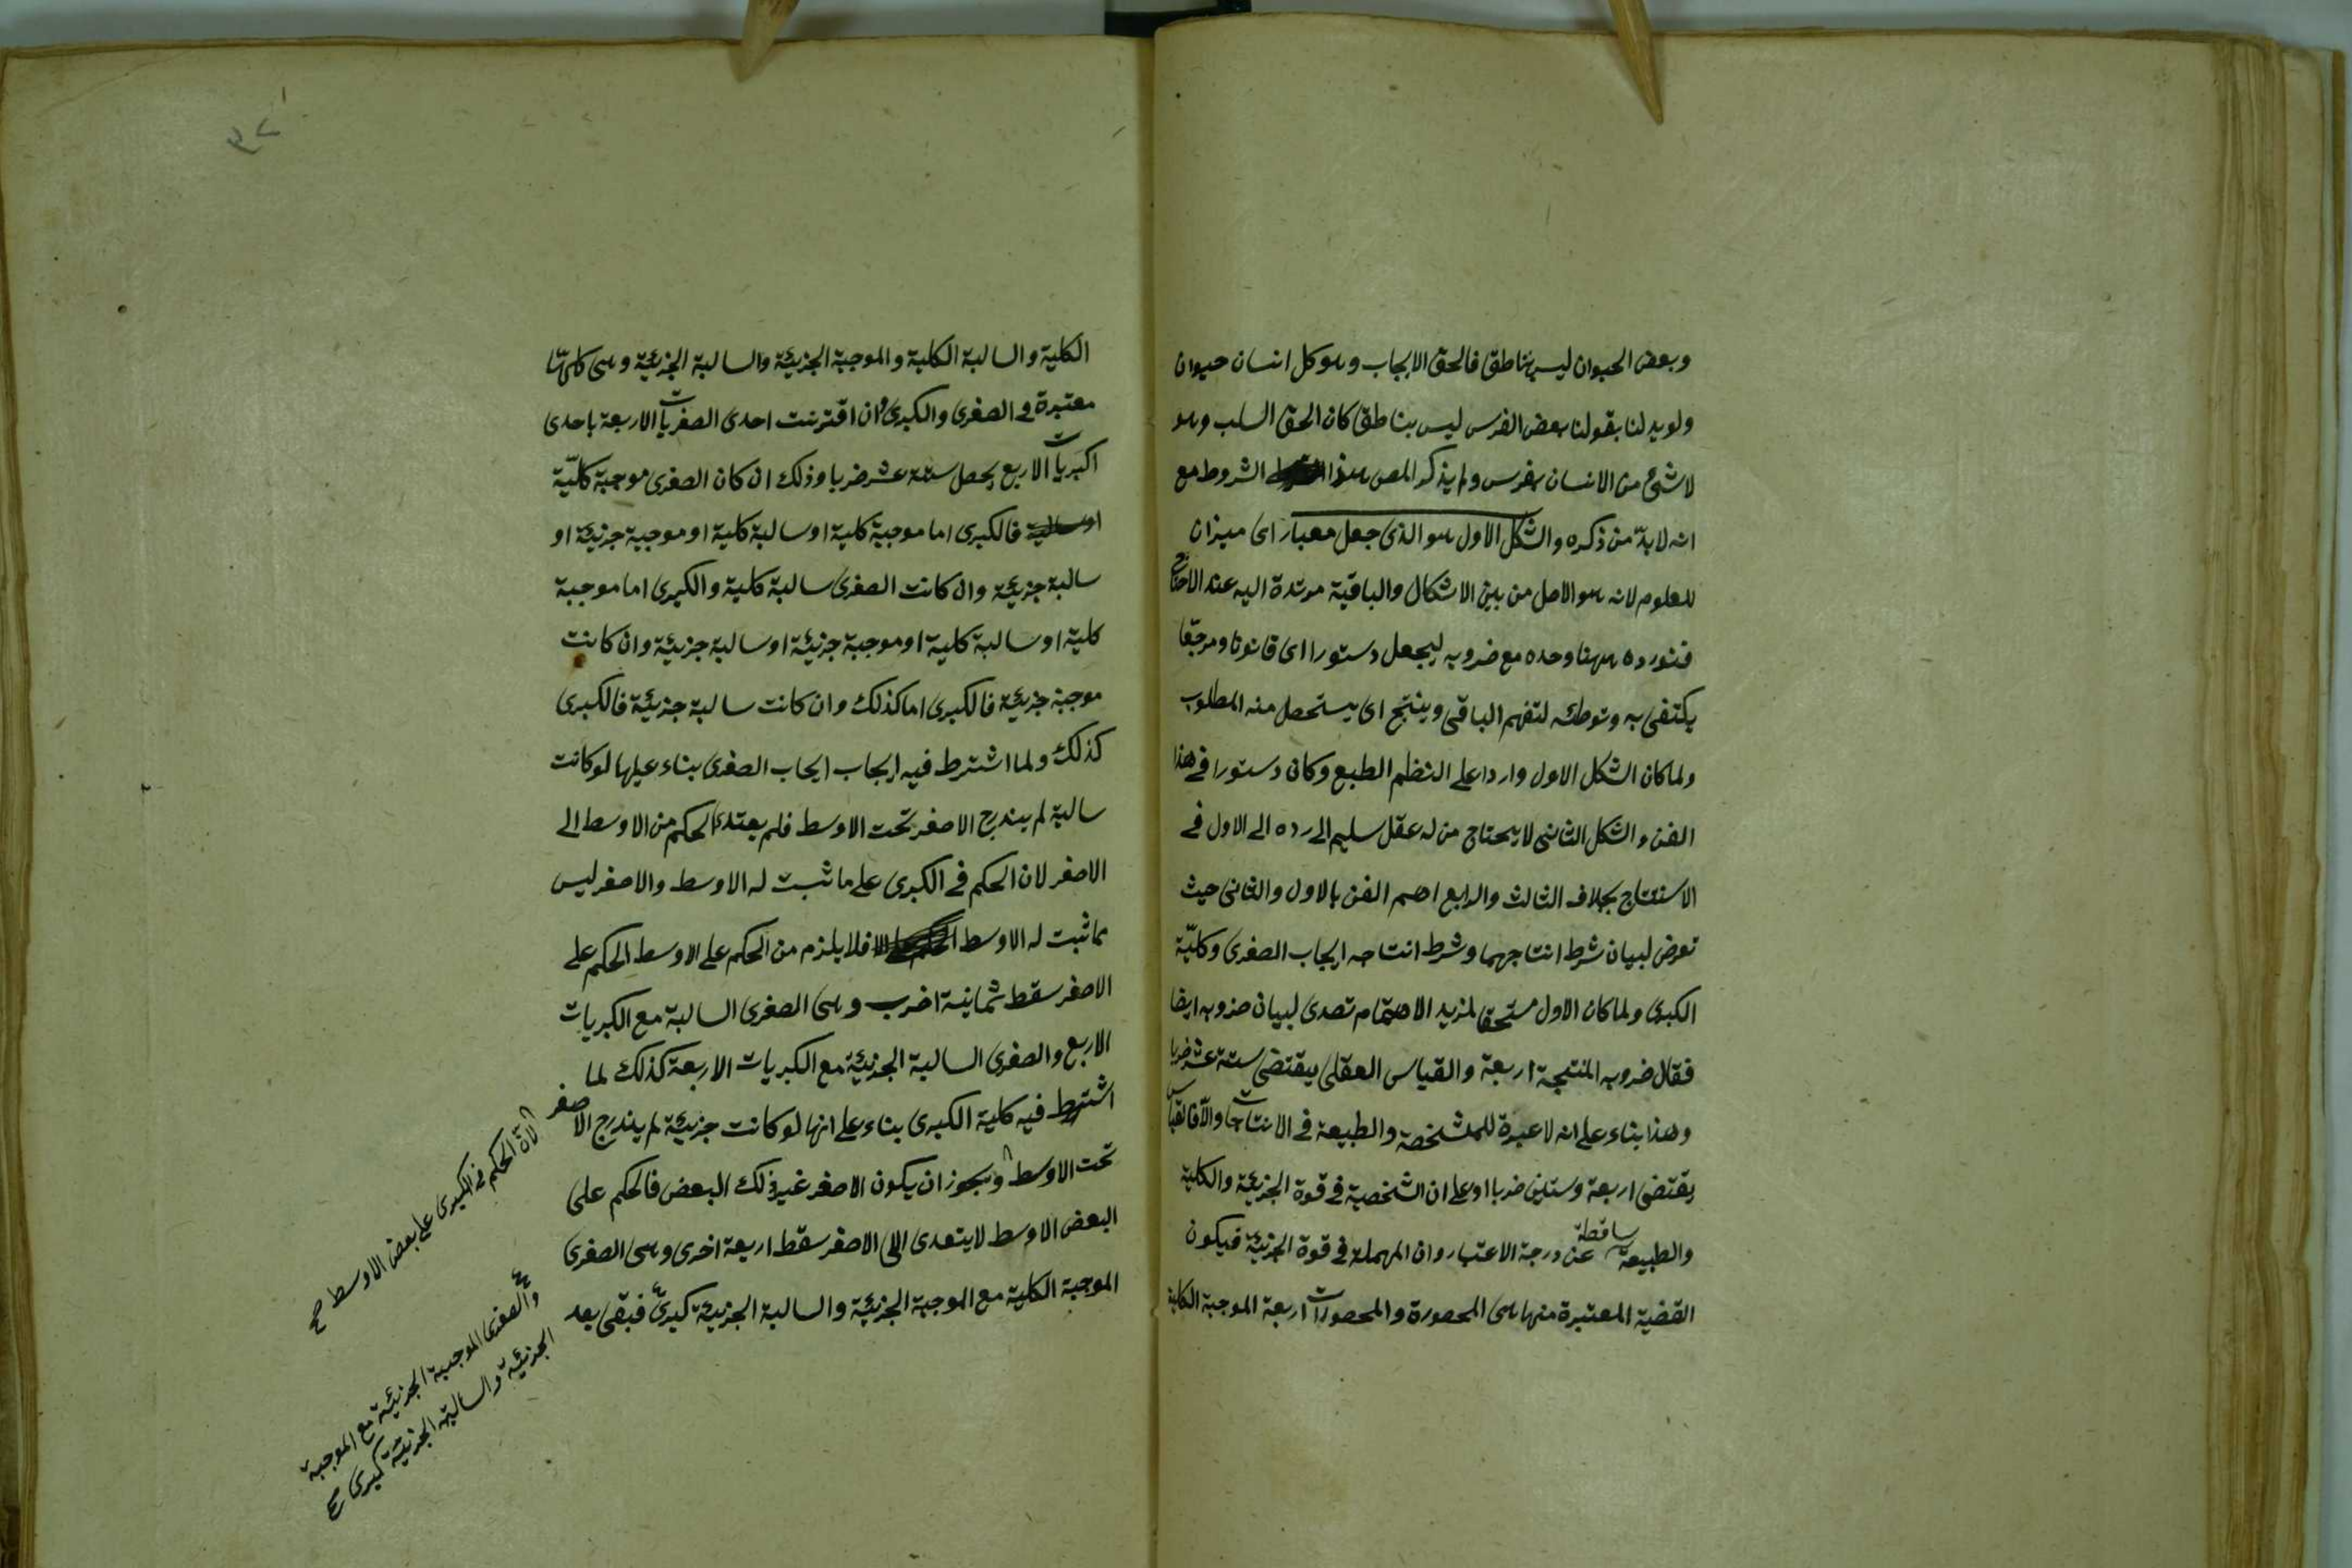 وبعض الحيوان ليس بناطق فالحق الايجاب وهو كل انسان حيوان
ولو بدلنا بقولنا بعض الفرس ليس بناطق كان الحق السلب وهو
لا شئ من الانسان بفرس ولم يذكر المص هذا الشروط مع
انه لا بدّ من ذكره والشكل الاول هو الذى جعل معيار اى ميزان
للعلوم لانه هو الاصل من بين الاشكال والباقية مرتدة اليه عند الاحتياج
فنورده ههنا وحده مع ضروبه ليجعل دستورا اى قانونا ومرجعا
يكتفى به وتوطئه لتفهم الباقى وينتج اى يستحصل منه المطلوب
ولما كان الشكل الاول واردا على النظم الطبع وكان دستورا فى هذا
الفن والشكل الثانى لا يحتاج من له عقل سليم الى رده الى الاول فى
الاستنتاج بخلاف الثالث والرابع اهم الفن بالاول والثانى حيث
تعرض لبيان شرط انتاجهما وشرط انتاجه ايجاب الصغرى وكليّة
الكبرى ولما كان الاول مستحقا لمزيد الاهتمام تصدى لبيان ضروبه ايضا
فقال ضروبه المنتجة اربعة والقياس العقلى يقتضى ستة عشر ضربا
وهذا بناء على انه لا عبرة للمشخصة والطبيعة فى الانتاجات والّا فالقياس
يقتضى اربعة وستين ضربا او على ان الشخصية فى قوة الجزئية والكلية
والطبيعة ساقطة عن درجة الاعتبار وان المهملة فى قوة الجزئية فيكون
القضية المعتبرة منها هى المحصورة والمحصورات اربعة الموجبة الكلية
الكلية والسالبة الكلية والموجبة الجزئية والسالبة الجزئية وهى كلها
معتبرة فى الصغرى والكبرى وان اقترنت احدى الصغريات الاربعة باحدى
اكبريات الاربع يحصل ستة عشر ضربا وذلك ان كان الصغرى موجبة كليّة
فالكبرى اما موجبة كلية او سالبة كلية او موجبة جزئية او
سالبة جزئية وان كانت الصغرى سالبة كلية والكبرى اما موجبة
كلية او سالبة كلية او موجبة جزئية او سالبة جزئية وان كانت
موجبة جزئية فالكبرى اما كذلك وان كانت سالبة جزئية فالكبرى
كذلك ولما اشترط فيه ايجاب ايجاب الصغرى بناء عليها لو كانت
سالبة لم يندرج الاصغر تحت الاوسط فلم يعتد الحكم من الاوسط الى
الاصغر لان الحكم فى الكبرى على ما ثبت له الاوسط والاصغر ليس
مما ثبت له الاوسط فلا يلزم من الحكم على الاوسط الحكم على
الاصغر سقط ثمانية اضرب وهى الصغرى السالبة مع الكبريات
الاربع والصغرى السالبة الجزئية مع الكبريات الاربعة كذلك لما
اشترط فيه كلية الكبرى بناء على انها لو كانت جزئية لم يندرج الاصغر
تحت الاوسط ويجوز ان يكون الاصغر غير ذلك البعض فالحكم على
البعض الاوسط لا يتعدى الى الاصغر سقط اربعة اخرى وهى الصغرى
الموجبة الكلية مع الموجبة الجزئية والسالبة الجزئية كبرى فبقى بعد
لان الحكم فى الكبرى على بعض الاوسط صح
والصغرى الموجبة الجزئية مع الموجبة
الجزئية والسالبة الجزئية كبرى صح